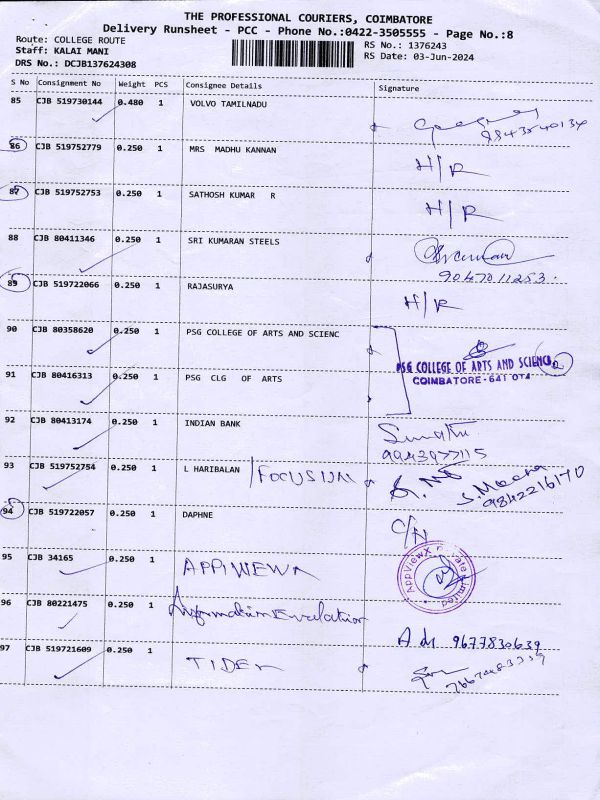 THE PROFESSIONAL COURIERS, COIMBATORE
Delivery Runsheet - PCC - Phone No.:0422-3505555 - Page No.:8
Route: COLLEGE ROUTE RS No.: 1376243
Staff: KALAI MANI RS Date: 03-Jun-2024
DRS No.: DCJB137624308
S No Consignment No Weight PCS Consignee Details Signature
85 CJB 519730144 0.480 1 VOLVO TAMILNADU
9843540134
86 CJB 519752779 0.250 1 MRS MADHU KANNAN H/R
87 CJB 519752753 0.250 1 SATHOSH KUMAR R H/R
88 CJB 80411346 0.250 1 SRI KUMARAN STEELS
9047011253.
89 CJB 519722066 0.250 1 RAJASURYA H/R
90 CJB 80358620 0.250 1 PSG COLLEGE OF ARTS AND SCIENC
PSG COLLEGE OF ARTS AND SCIENCE
COIMBATORE-641 014
91 CJB 80416313 0.250 1 PSG CLG OF ARTS
92 CJB 80413174 0.250 1 INDIAN BANK
9943977115
93 CJB 519752754 0.250 1 L HARIBALAN S. Meena
9842216170
94 CJB 519722057 0.250 1 DAPHNE C/N
95 CJB 34165 0.250 1 APPVIEWX AppViewX Private Limited
96 CJB 80221475 0.250 1 Information Evolution
9677830639
97 CJB 519721609 0.250 1 TIDEL